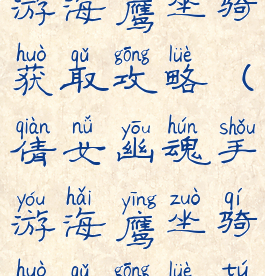 游海鹰坐骑
huò qǔ gōng lüè
获取攻略（
qiàn nǚ yōu hún shǒu
倩女幽魂手
yóu hǎi yīng zuò qí
游海鹰坐骑
huò qǔ gōng lüè tú